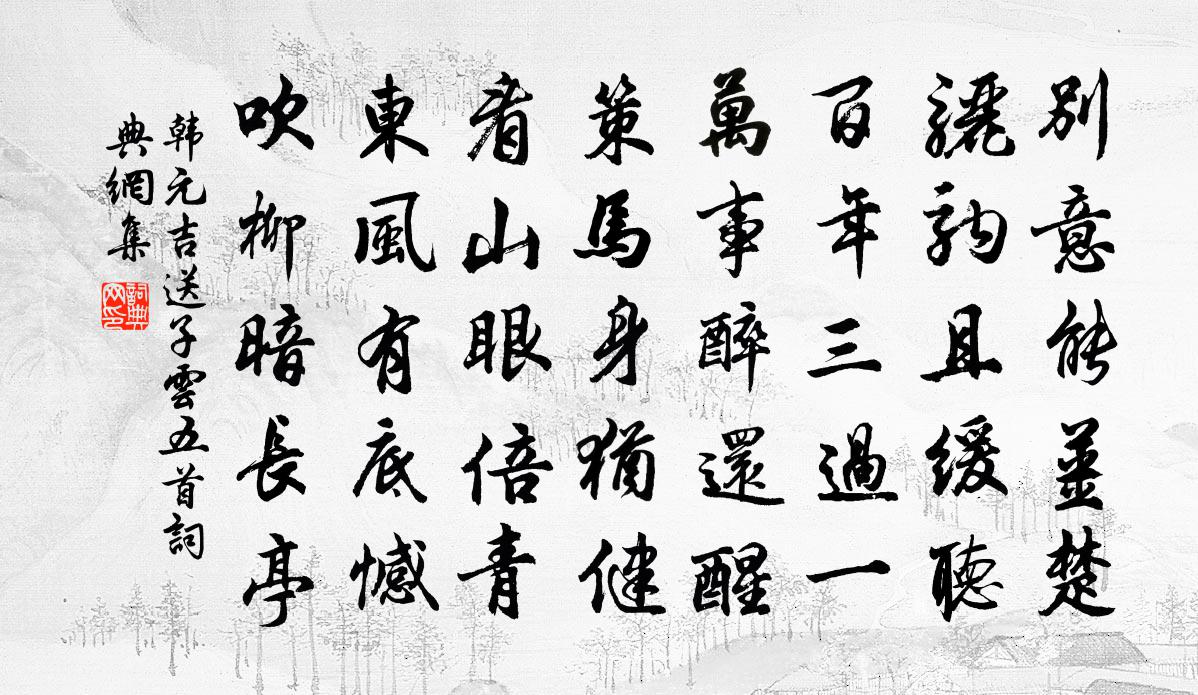 別意能楚
驪駒且緩聽
百年三過一
萬事醉還醒
策馬身猶健
看山眼倍青
東風有底憾
吹柳暗長亭
韩元吉送子雲五首詞
典網集
詞典
网印